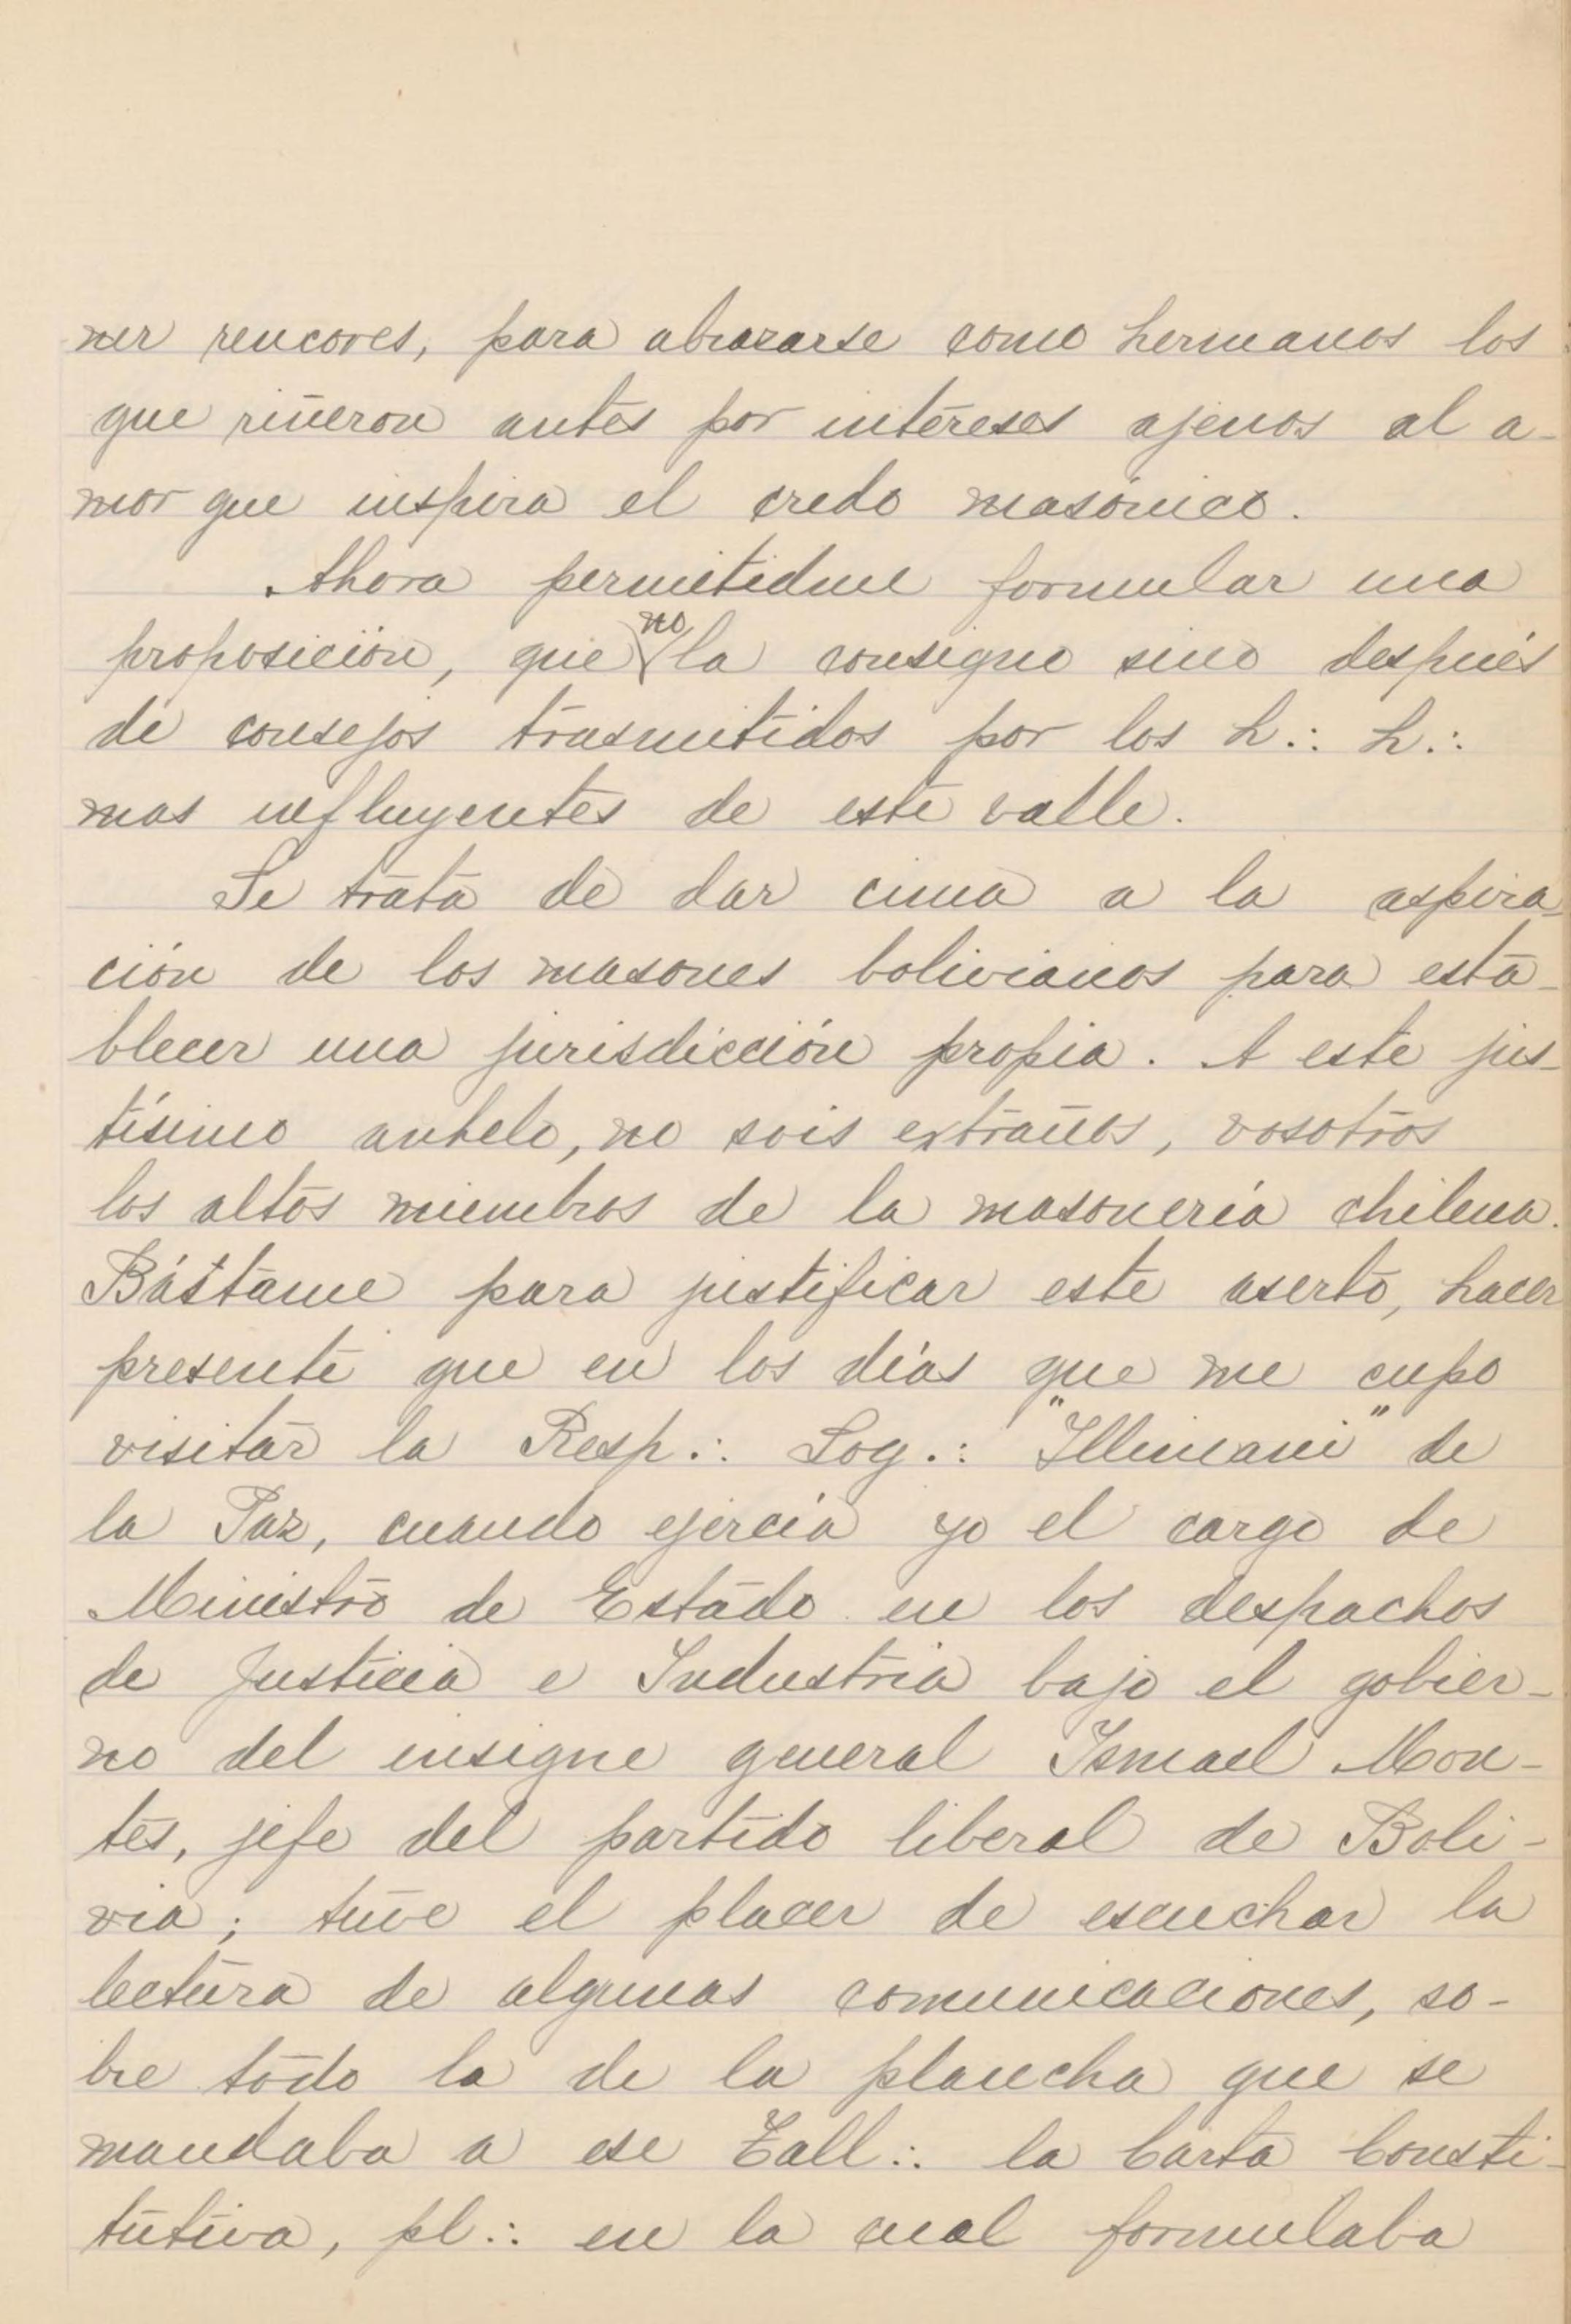 ner rencores, para abrazarse como hermanos los
que riñeron antes por intereses ajenos al a-
mor que inspira el credo masónico.
Ahora permitidme formular una
proposición, que no la consigno sino después
de consejos trasmitidos por los h.·. h.·.
mas influyentes de este valle.
Se trata de dar cima a la aspira-
ción de los masones bolivianos para esta-
blecer una jurisdicción propia. A este jus-
tísimo anhelo, no sois extraños, vosotros
los altos miembros de la masonería chilena.
Bástame para justificar este aserto, hacer
presente que en los días que me cupo
visitar la Resp.·. Log.·. "Illimani" de
la Paz, cuando ejercía yo el cargo de
Ministro de Estado en los despachos
de Justicia e Industria bajo el gobier-
no del insigne general Ismael Mon-
tes, jefe del partido liberal de Boli-
via; tuve el placer de escuchar la
lectura de algunas comunicaciones, so-
bre todo la de la plancha que se
mandaba a ese Tall.·. la Carta Consti-
tutiva, pl.·. en la cual formulaba